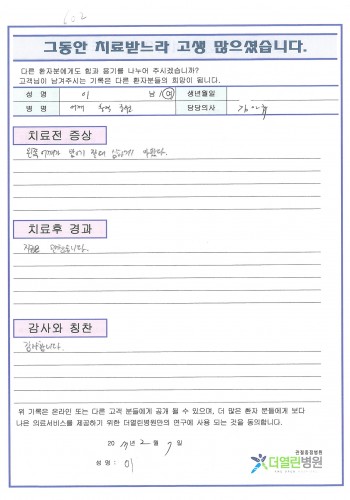 602
그동안 치료받느라 고생 많으셨습니다.
다른 환자분에게도 힘과 용기를 나누어 주시겠습니까?
고객님이 남겨주시는 기록은 다른 환자분들의 희망이 됩니다.
성 명 이 남/여 생년월일
병 명 어깨 담당의사 김
치료전 증상
왼쪽 어깨가 심하게 아팠다.
치료후 경과
지금은
감사와 칭찬
감사합니다.
위 기록은 온라인 또는 다른 고객 분들에게 공개 될 수 있으며, 더 많은 환자 분들에게 보다
나은 의료서비스를 제공하기 위한 더열린병원만의 연구에 사용 되는 것을 동의합니다.
20 년 2 월 7 일
성 명 : 이
관절중점병원
더열린병원